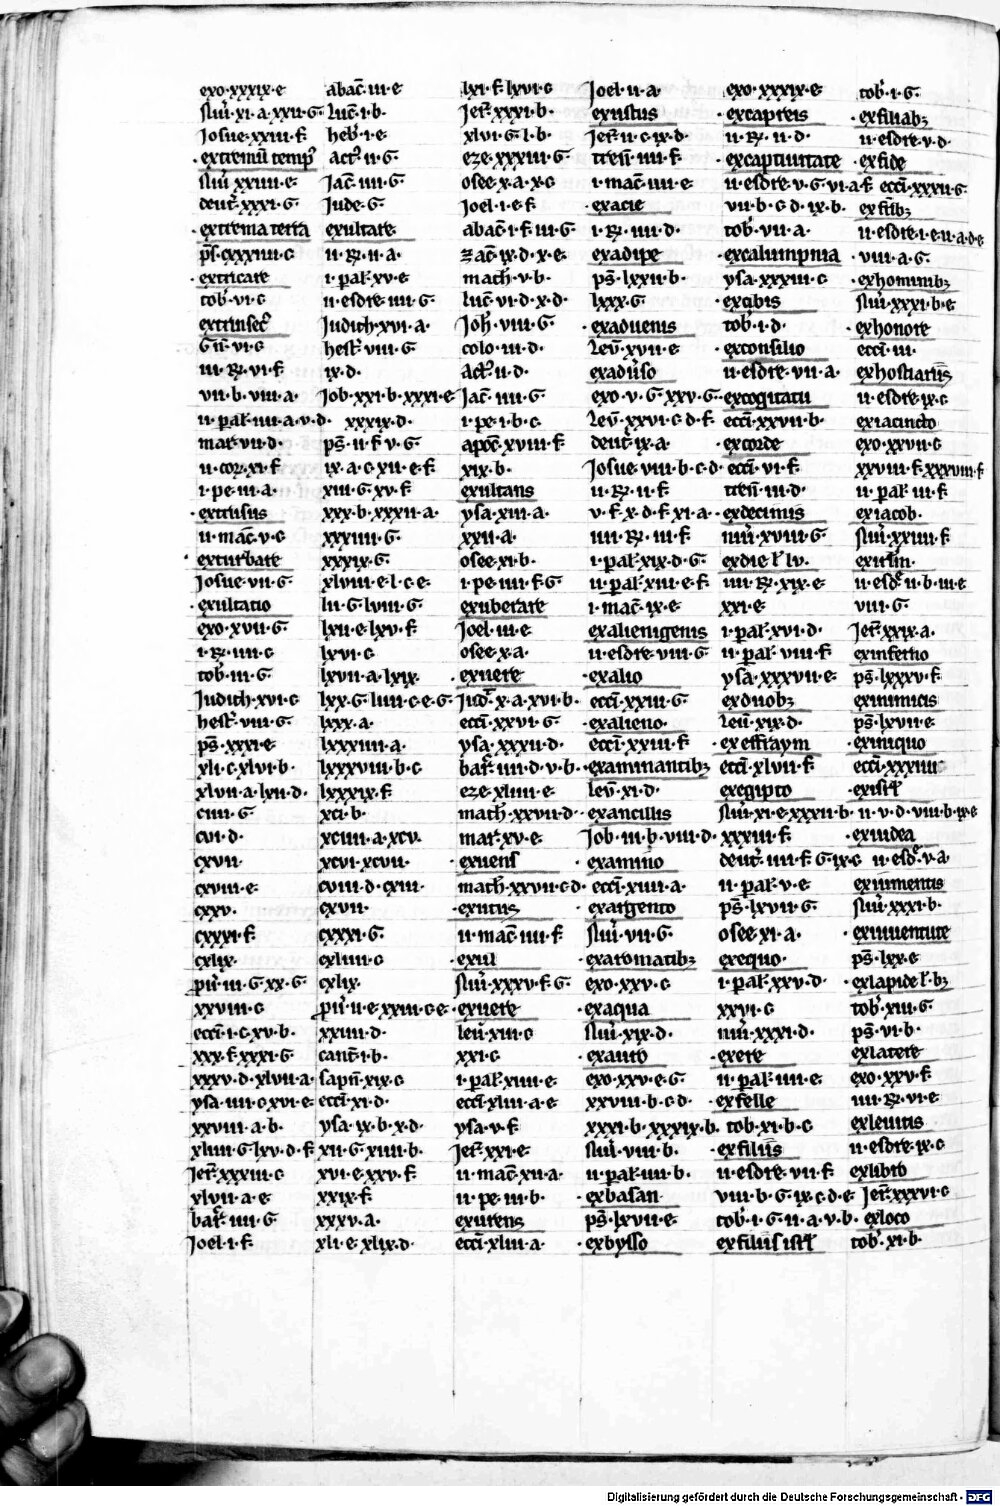 exo·xxxix·e
nuͫ·xi·a·xxii·G·
Josue·xxiii·f
·extremū temp⁹
nuͫ xxiiii·e·
deut̄·xxxi·G·
·extrema terra
ps̄·cxxxiiii·c
·extricare
tob̄·vi·c
extrinsec⁹
Gn̄·vi·c
iii·R·vi·f
vii·b·viii·a·
ii·pal̄·iiii·a·v·d·
mat̄·vii·d·
ii·cor̄·xi·f
i·pe·iii·a·
·extrusus
ii·mac̄·v·c
exturbare
Josue·vii·G·
·exultatio
exo·xvii·G·
i·R·iiii·c
tob̄·iii·G·
Judith·xvi·c
hest̄·viii·G·
ps̄·xxxi·e
xli·c·xlvi·b·
xlvii·a·lxii·d·
ciiii·G·
cvi·d·
cxvii·
cxviii·e·
cxxv·
cxxxi·f
cxlix·
pū·iii·G·xx·G·
xxviii·c
ecci̅·i·c·xv·b·
xxx·f·xxxi·G
xxxv·d·xlvii·a·
ysa·iiii·c·xvi·e·
xxviii·a·b·
xliiii·G·lxv·d·f
Jer̄·xxxiii·c
xlvii·a·e
bar̄·iiii·G·
Joel·i·f·
abac̄·iii·e
luc̄·i·b·
heb̄·i·e·
act⁹·ii·G·
Jac̄·iiii·G·
Jude·G·
exultare
ii·R·ii·a·
i·pal̄·xv·e·
ii·esdre·iiii·G·
Judith·xvi·a·
hest̄·viii·G·
ix·d·
Job·xxi·b·xxxi·e
xxxix·d·
ps̄·ii·f·v·G·
ix·a·c·xii·e·f
xiii·G·xv·f·
xxx·b·xxxii·a·
xxxiiii·G·
xxxix·G·
xlviii·e·l·c·e·
lii·G·lviii·G·
lxii·e·lxv·f·
lxvi·c
lxvii·a·lxix·
lxx·G·
lxxx·a·
lxxxiiii·a·
lxxxviii·b·c
lxxxix·f
xci·b·
xciiii·a·xcv·
xcvi·xcvii·
cviii·d·cxiii·
cxvii·
cxxxi·G·
cxliiii·c
cxlix·
pū·ii·e·
xxiiii·d·
cant̄·i·b·
sapn̄·xix·c
ecci̅·xi·d·
ysa·ix·b·x·d·
xii·G·xiiii·b·
xvi·e·xxv·f·
xxix·f·
xxxv·a·
xli·e·xlix·d·
lxi·f·lxvi·c
Jer̄·xxxi·b·
xlvi·G·l·b·
eze·xxxiii·G·
osee·x·a·x·c
Joel·i·e·f·
abac̄·i·f·iii·G·
zac̄·ix·d·x·e·
math̄·v·b·
luc̄·vi·d·x·d·
Joh̄·viii·G·
colo·iii·d·
act⁹·ii·d·
Jac̄·iiii·G·
i·pe·i·b·c·
apoc̄·xviii·f
xix·b·
exultans
ysa·xiii·a·
xxii·a·
osee·xi·b·
i·pe·iiii·f·G·
exuberare
Joel·iii·e
osee·x·a·
·exuere
Jud̄·x·a·xvi·b·
ecci̅·xxvi·G·
ysa·xxxii·d·
bar̄·iiii·d·v·b·
eze·xliiii·e·
math̄·xxvii·d·
mar̄·xv·e·
·exuens
math̄·xxvii·c·d·
·exutus
ii·mac̄·iiii·f
·exul
nuͫ·xxxv·f·G·
·exuere
leū·xiii·c
xxi·c
i·pal̄·xiiii·e·
ecci̅·xliii·a·e
ysa·v·f
Jer̄·xxi·e·
ii·mac̄·xii·a·
ii·pe·iii·b·
exurens
ecci̅·xliii·a·
Joel·ii·a·
exustus
Jer̄·ii·c·ix·d·
tren̄·iiii·f·
i·mac̄·iiii·e
·exacie
i·R·iiii·d·
exadipe
ps̄·lxxii·b·
lxxx·G·
·exaduenis
leū·xvii·e
exadūso
exo·v·G·xxv·G·
leū·xxvi·c·d·f
deut̄·ix·a·
Josue·viii·b·c·d·
ii·R·ii·f
v·f·x·d·f·xi·a·
iiii·R·iii·f·
i·pal̄·xix·d·G·
ii·pal̄·xiii·e·f
i·mac̄·ix·e
exalienigenis
ii·esdre·viii·G·
·exalio
ecci̅·xxiii·G·
·exalieno·
ecci̅·xxiii·f
·examinantibꝫ
leū·xi·d·
·exancillis
Job·iii·b·viii·d·
·examino
ecci̅·xiiii·a·
·exargento
nuͫ·vii·G·
·exaromatibꝫ
exo·xxv·c
·exaqua
nuͫ·xix·d·
·exauro
exo·xxv·e·G·
xxviii·b·c·d·
xxxi·b·xxxix·b·
nuͫ·viii·b·
ii·pal̄·iiii·b·
·exbasan
ps̄·lxvii·e·
·exbysso
exo·xxxix·e
·excapreis
ii·R·ii·d·
·excaptiuitate
ii·esdre·v·G·vi·a·f
vii·b·c·d·ix·b·
tob̄·vii·a·
·excalumpnia
ysa·xxxiii·c
·excibis
tob̄·i·d·
·exconsilio
ii·esdre·vii·a·
·excogitatu
ecci̅·xxvii·b·
·excorde
ecci̅·vi·f·
tren̄·iii·d·
·exdecimis
nuͫ·xviii·G·
·exdie l̄ lv·
iiii·R·xix·e
xxi·e
i·pal̄·xvi·d·
ii·pal̄·viii·f
ysa·xxxvii·e
exduobꝫ
leū·xix·d·
·exeffraym
ecci̅·xlvii·f
exegipto
nuͫ·xi·e·xxxii·b·
xxxiii·f
deut̄·iiii·f·G·ix·c
ii·pal̄·v·e
ps̄·lxvii·G·
osee·xi·a·
execquo·
i·pal̄·xxv·d·
xxvi·c
nuͫ·xxxi·d·
·exere
ii·pal̄·iiii·e·
·exfelle
tob·xi·b·c
·exfiliis
ii·esdre·vii·f
viii·b·G·ix·c·d·e
tob̄·i·G·ii·a·v·b·
exfiliis isrl̄
tob̄·i·G·
·exfiliabꝫ
ii·esdre·v·d·
·exfide
ecci̅·xxxii·G·
exfrībꝫ
ii·esdre·i·e·ii·a·d·e
·viii·a·G·
·exhominibꝫ
nuͫ·xxxi·b·e
·exhonore
ecci̅·iii·
exhostiariis
ii·esdre·ix·c
exiacincto
exo·xxvii·c
xxviii·f·xxxviii·f
ii·pal̄·iii·f·
exiacob·
nuͫ·xxiiii·f
exirl̄m·
ii·esd̄·ii·b·iii·e
viii·G·
Jer̄·xxix·a·
exinferno
ps̄·lxxxv·f
exinimicis
ps̄·lxvii·e
·exiniquo
ecci̅·xxxiiii·
·exisrl̄
ii·v·d·viii·b·ix·e
·exiudea
ii·esd̄·v·a·
exiumentis
nuͫ·xxxi·b·
·exiuuentute
ps̄·lxx·e
·exlapide l̄·bꝫ
tob̄·xiii·G·
ps̄·vi·b·
exlatere
exo·xxv·f
iiii·R·vi·e
exleuitis
ii·esdre·ix·c
exlibro
Jer̄·xxxvi·c
exloco
tob̄·xi·b·
Digitalisierung gefördert durch die Deutsche Forschungsgemeinschaft - DFG